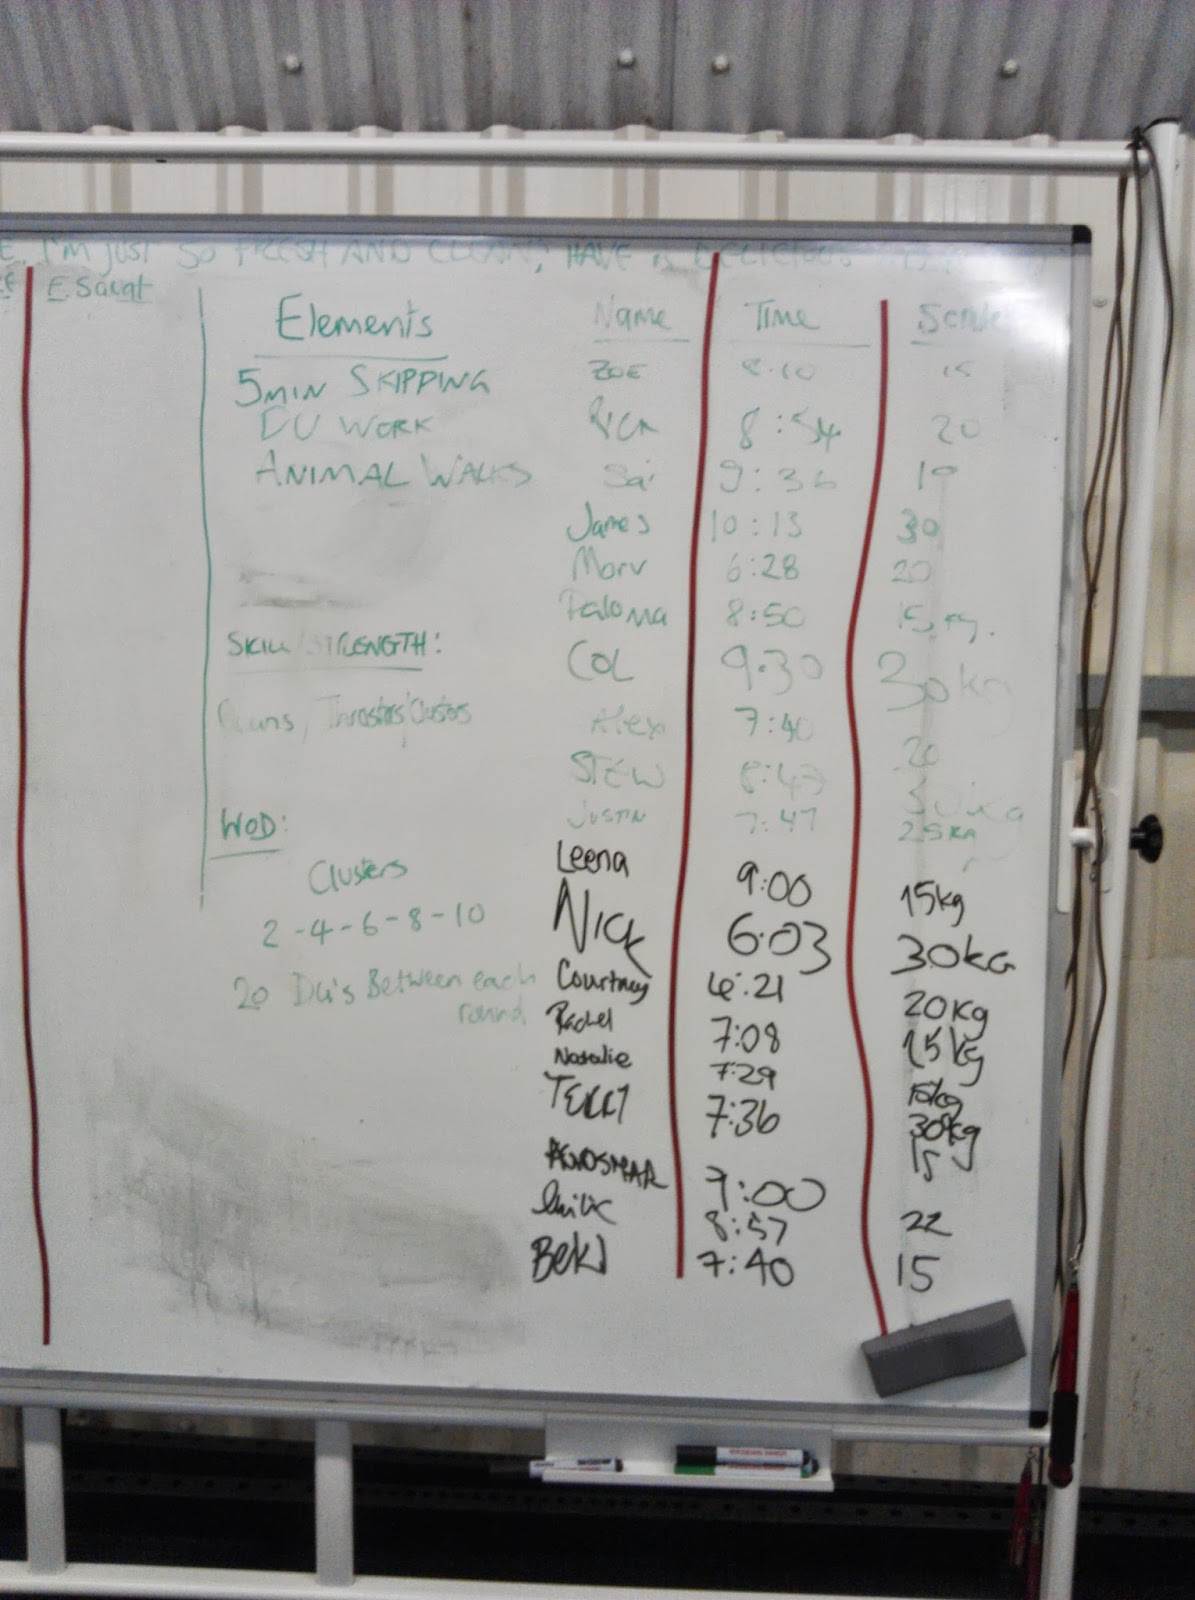 I'M JUST SO FRESH AND CLEAN, HAVE A DELICIOUS
E Squat
Elements
5MIN SKIPPING
DU WORK
ANIMAL WALKS
SKILL/STRENGTH:
Thrusters/Clusters
WOD:
Clusters
2-4-6-8-10
20 DU's Between each
round
Name Time Scale
ZOE 8:10 15
RICK 8:54 20
Sai 9:36
James 10:13 30
Marv 6:28 20
Paloma 8:50 15kg.
COL 9.30 30kg
Alex 7:40 20
STEW 8:43 30kg
JUSTIN 7:47 25KG
Leena 9:00 15kg
NICK 6:03 30KG
Courtney 6:21 20kg
Rachel 7:08 15kg
Natalie 7:29 15kg
TERRY 7:36 30kg
7:00 15
8:57 22
Beki 7:40 15